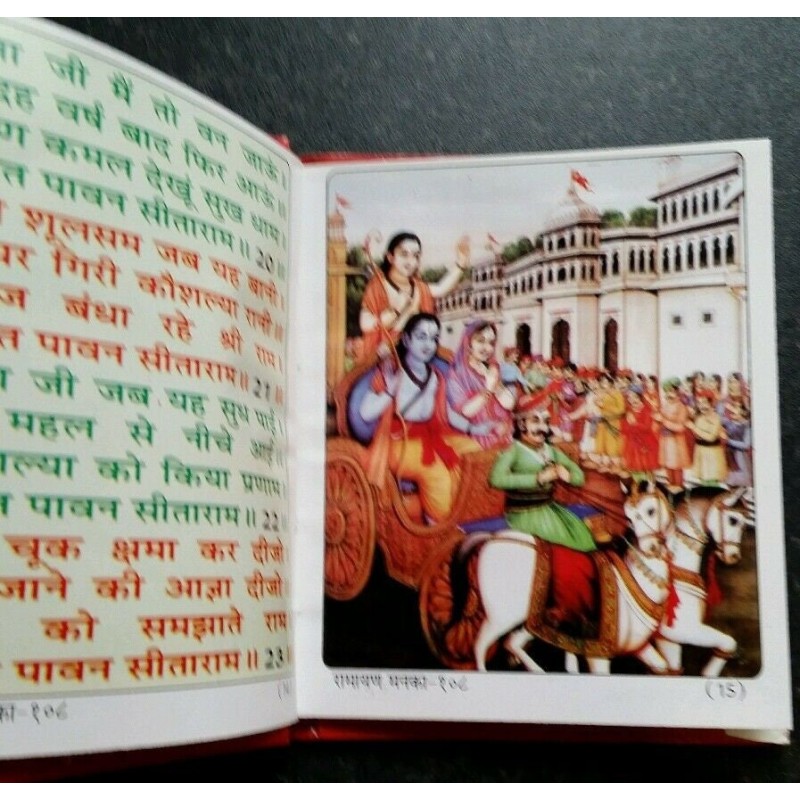 जी मैं तो वन जाऊं।
वर्ष बाद फिर आऊं॥
कमल देखूं सुख धाम।
पावन सीताराम॥ 20॥
शूलसम जब यह बानी।
गिरी कौशल्या रानी॥
बंधा रहे श्री राम।
पावन सीताराम॥ 21॥
जी जब यह सुध पाई।
महल से नीचे आई॥
को किया प्रणाम।
पावन सीताराम॥ 22॥
चूक क्षमा कर दीजो
जाने की आज्ञा दीजो
को समझाते राम
पावन सीताराम॥ 23॥
-१०८
रामायण मनका-१०८
(15)